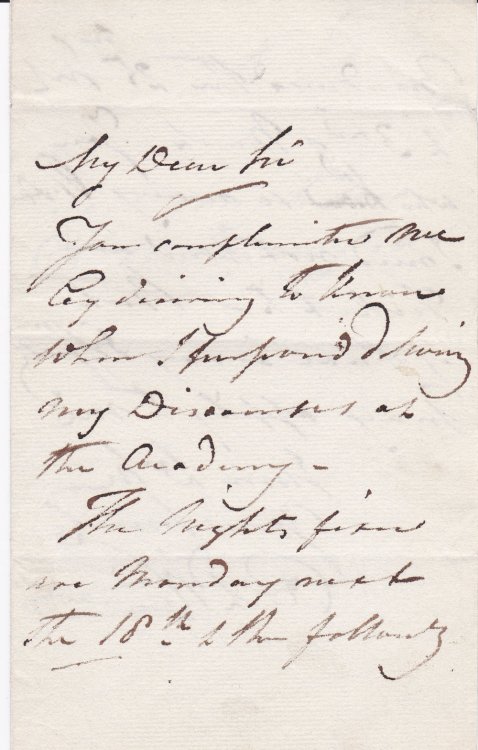 My Dear Sir
You complimented me
by desiring to know
when I purposed giving
my Discourses at
the Academy -
The Nights fixed
are Monday next
the 18th & the following